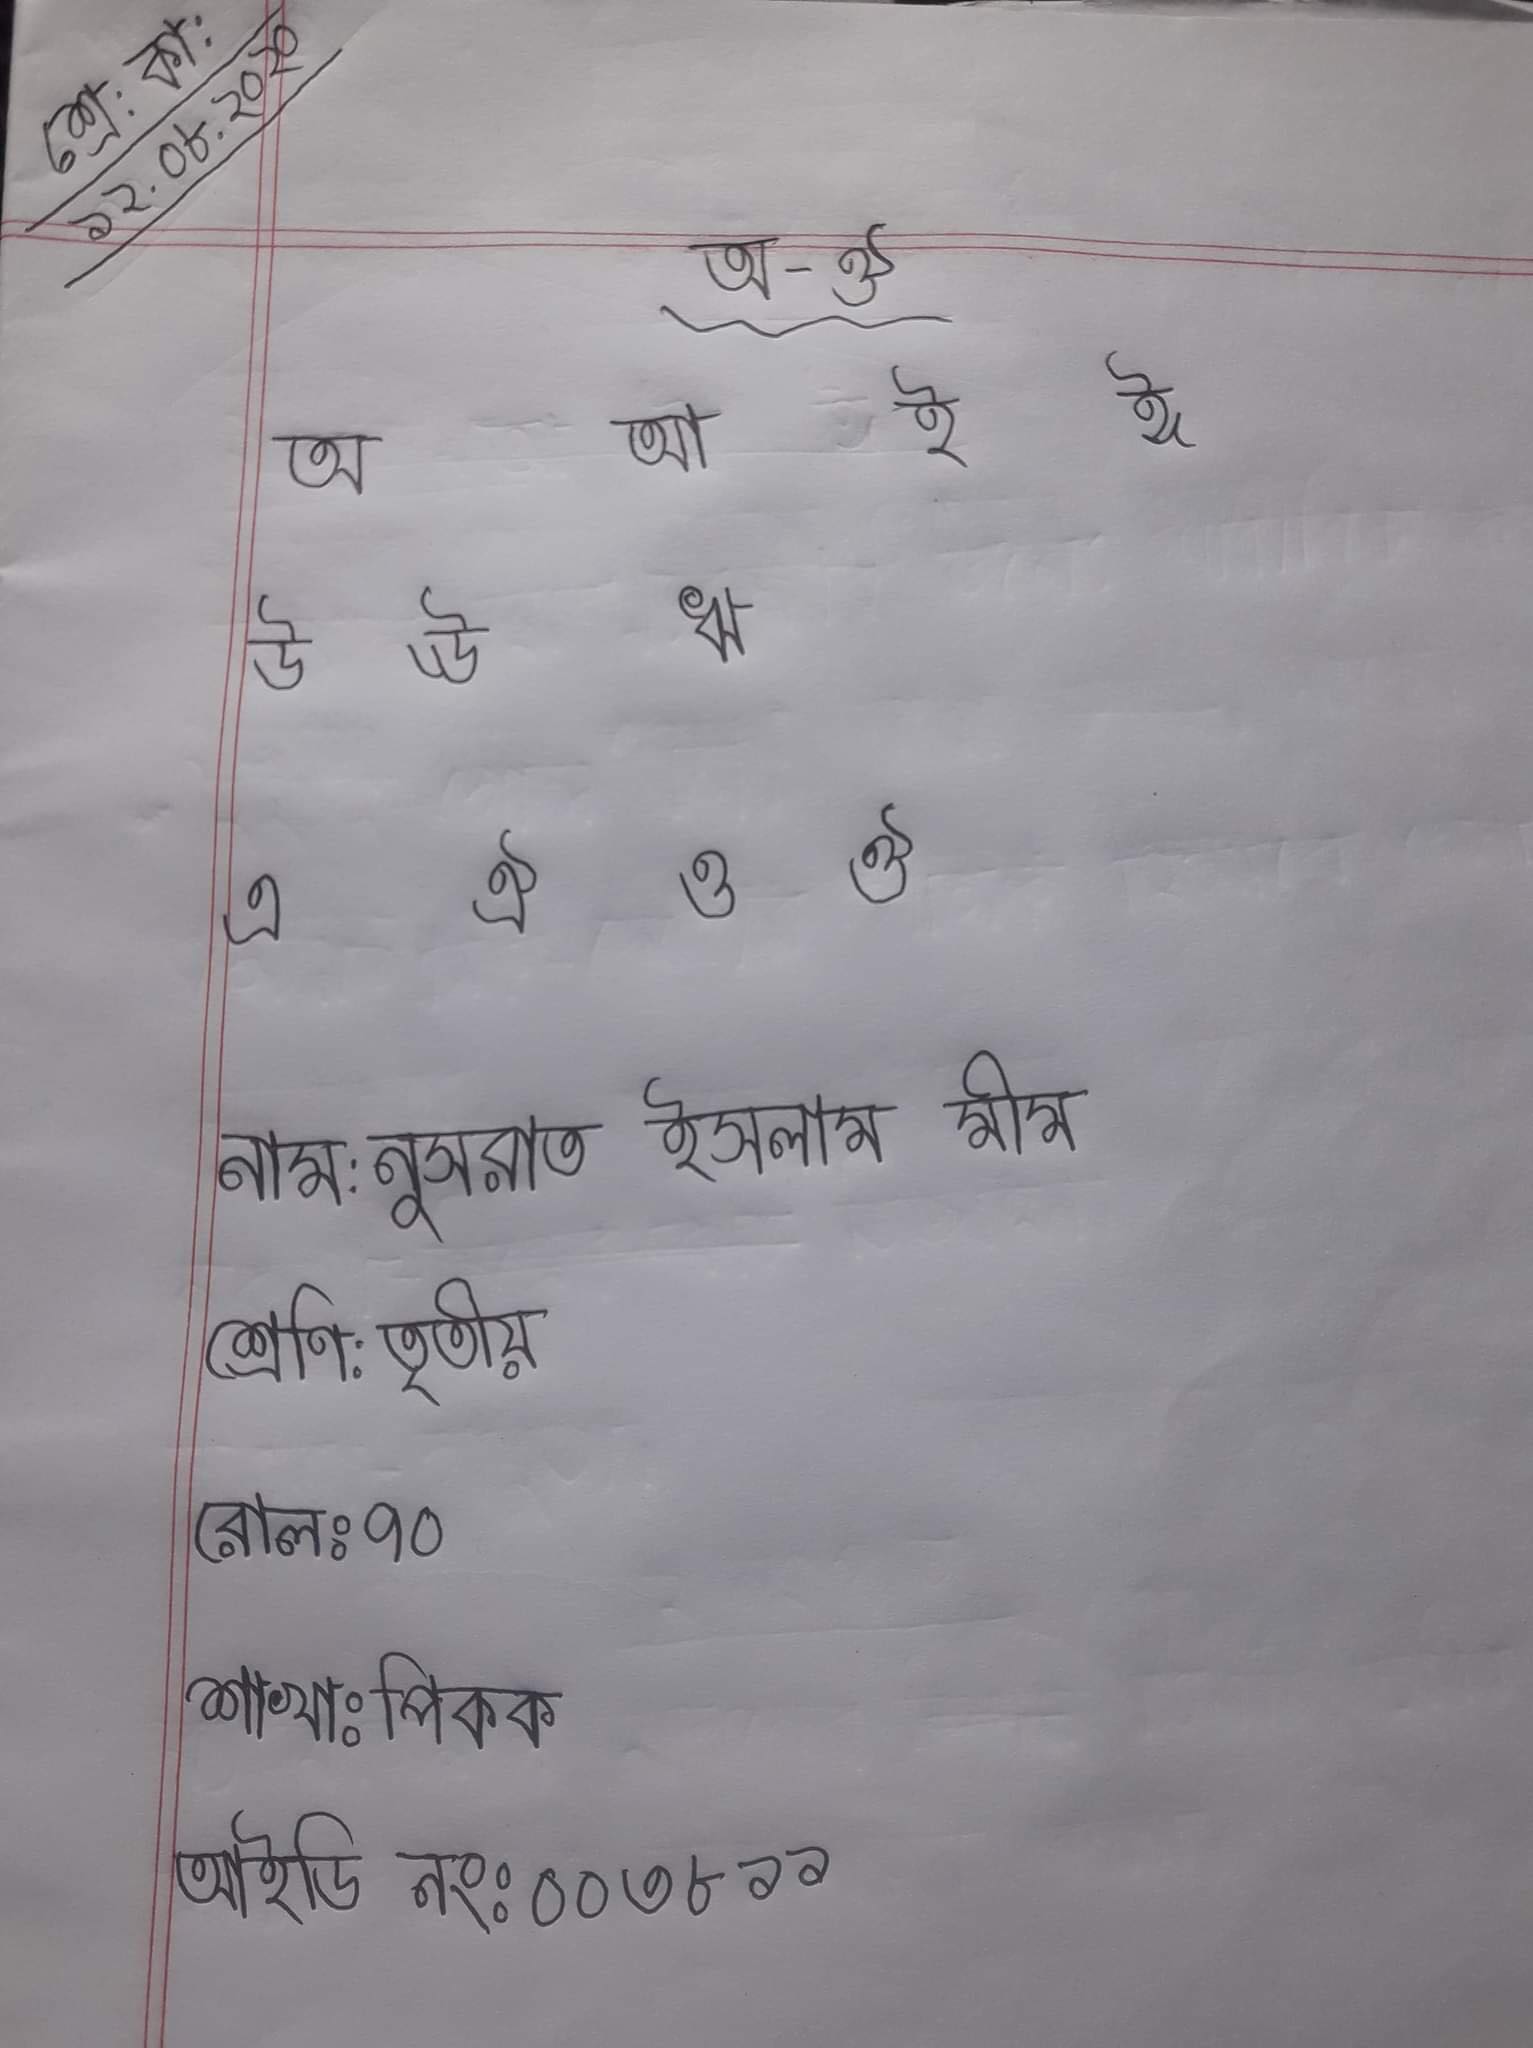 শ্রে: কা:
১২.০৮.২০২০
অ - ঔ
অ আ ই ঈ
উ ঊ ঋ
এ ঐ ও ঔ
নাম: নুসরাত ইসলাম মীম
শ্রেণি: তৃতীয়
রোলঃ ৭০
শাখাঃ পিকক
আইডি নংঃ ০০৩৮১১